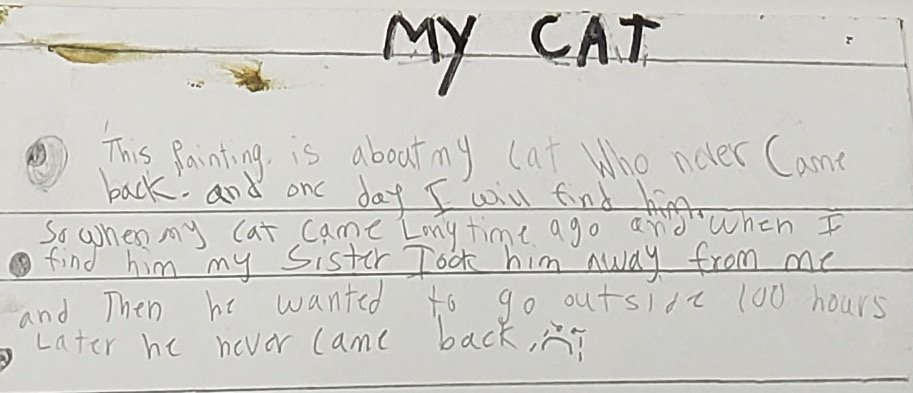 MY CAT
This Painting. is about my cat Who never Came
back. and one day I will find him.
So when my cat came Long time ago and when I
find him my Sister Took him away from me
and Then he wanted to go outside 100 hours
Later he never came back.